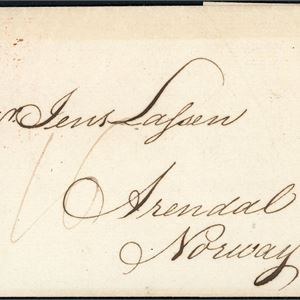 Jens Lassen
Arendal
Norway